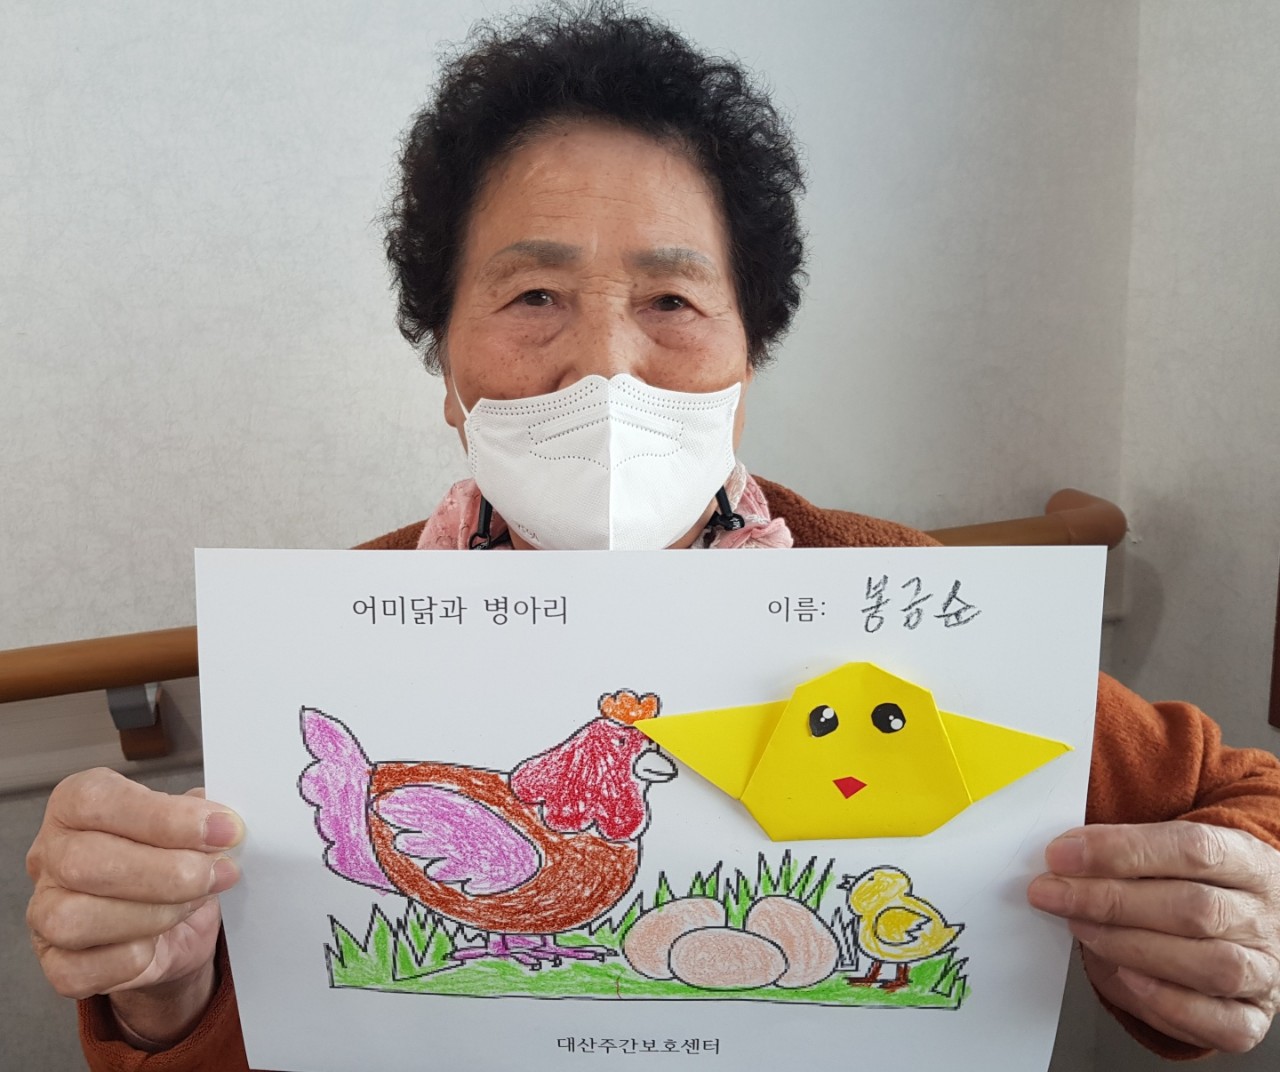 어미닭과 병아리
이름: 봉금순
대산주간보호센터